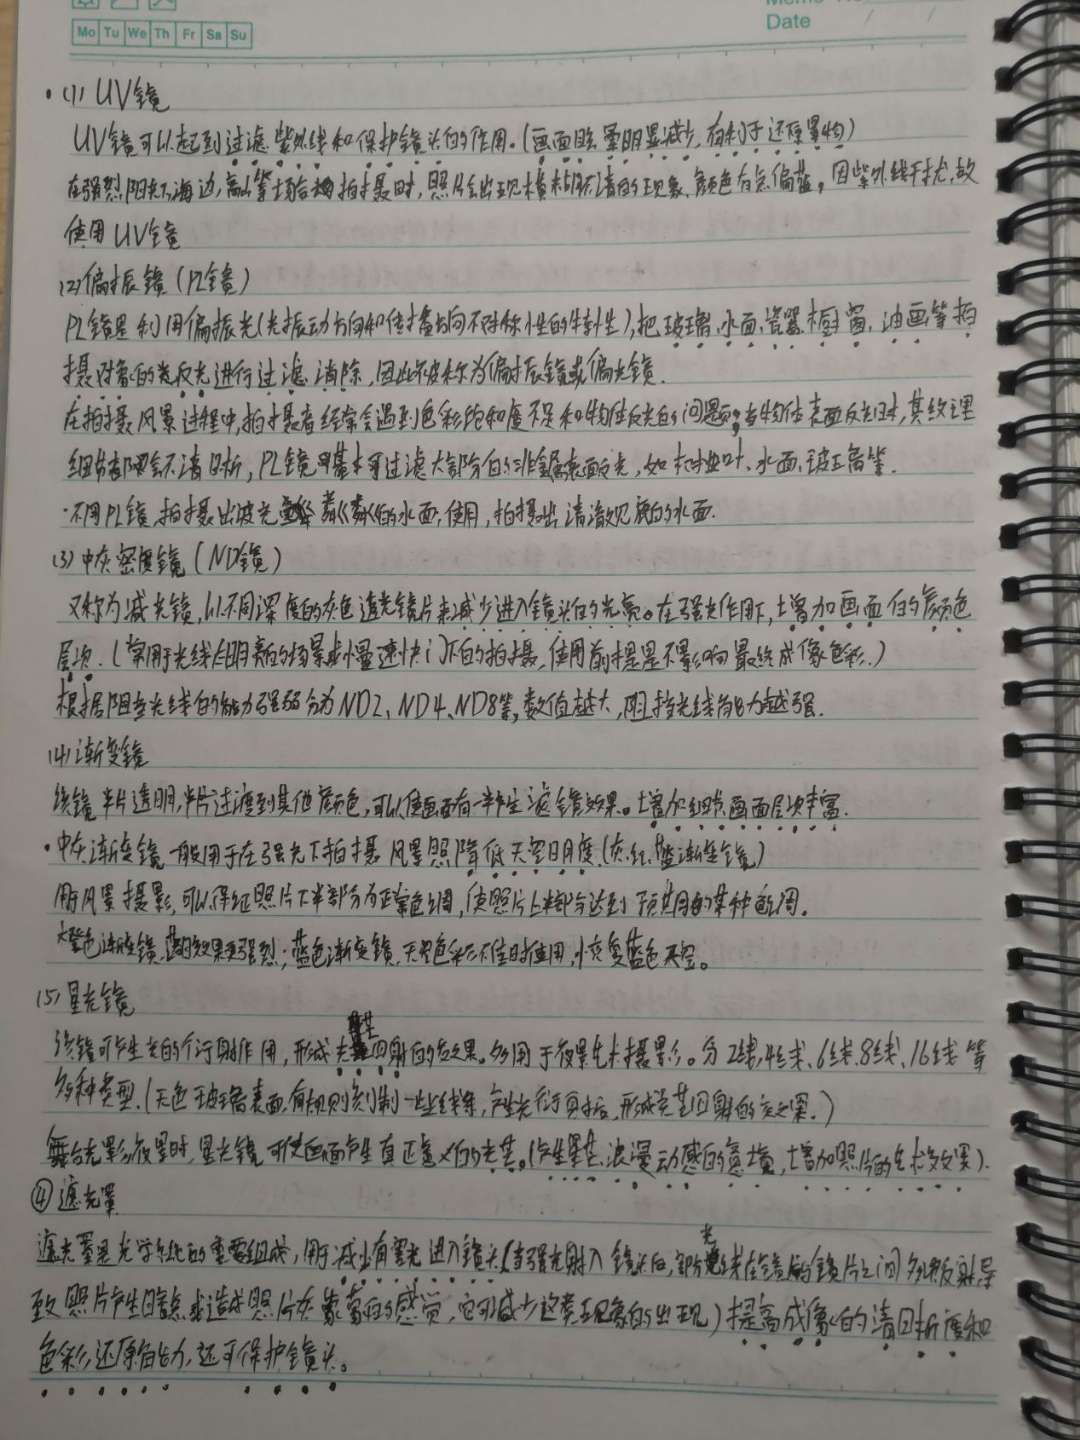 Memo No.
Mo Tu We Th Fr Sa Su
Date / /
·(1) UV镜
UV镜可以起到过滤紫外线和保护镜头的作用。(画面眩晕明显减少,有利于还原景物)
在强烈阳光下海边,高山等场合拍摄时,照片会出现模糊不清的现象,颜色有点偏蓝,因紫外线干扰,故
使用UV镜
(2)偏振镜(PL镜)
PL镜是利用偏振光(光振动方向和传播方向不对称性的特性),把玻璃、水面、瓷器、橱窗、油画等拍
摄对象的反光进行过滤、消除,因此被称为偏振镜或偏光镜.
在拍摄风景过程中,拍摄者经常会遇到色彩饱和度不足和物体反光的问题,当物体表面反光时,其纹理
细节都会不清晰,PL镜基本可过滤大部分的非金属表面反光,如树叶、水面、玻璃等.
·不用PL镜,拍摄出波光粼粼的水面,使用,拍摄出清澈见底的水面.
(3)中灰密度镜(ND镜)
又称为减光镜,以不同深度的灰色透光镜片来减少进入镜头的光亮。在强光作用下,增加画面的颜色
层次.(常用于光线明亮的场景或慢速快门下的拍摄,使用前提是不影响最终成像色彩.)
根据阻挡光线的能力强弱分为ND2、ND4、ND8等,数值越大,阻挡光线能力越强.
(4)渐变镜
该镜半片透明,半片过渡到其他颜色,可以使画面有一半产生滤镜效果。增加细节,画面层次丰富.
·中灰渐变镜一般用于在强光下拍摄风景照降低天空明度.(灰、红、蓝渐变镜)
用于风景摄影,可以保证照片下半部分为正常色调,使照片上半部分达到预期的某种色调。
橙色渐变镜,效果更强烈;蓝色渐变镜,天空色彩不佳时使用,恢复蓝色天空。
(5)星光镜
该镜可产生光的衍射作用,形成光芒四射的效果。多用于夜景艺术摄影。分2线,4线、6线、8线、16线等
多种类型.(无色玻璃表面,有规则刻制一些线条,产生光衍射后,形成光芒四射的效果.)
舞台光影,夜景时,星光镜可使画面产生真正意义的光芒。(产生星芒、浪漫动感的意境,增加照片的艺术效果).
④遮光罩
遮光罩是光学系统的重要组成,用于减少有害光进入镜头(当强光射入镜头后,部分光线在镜后的镜片之间多次反射,导
致照片产生暗点,或造成照片灰蒙蒙的感觉,它可减少这类现象的出现)提高成像的清晰度和
色彩还原能力,还可保护镜头。